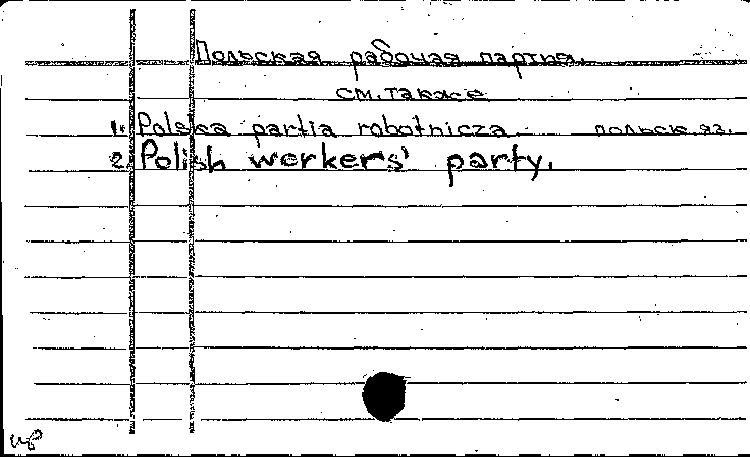 Польская рабочая партия.
см. также
1. Polska partia robotnicza. польск. яз.
2. Polish workers' party.